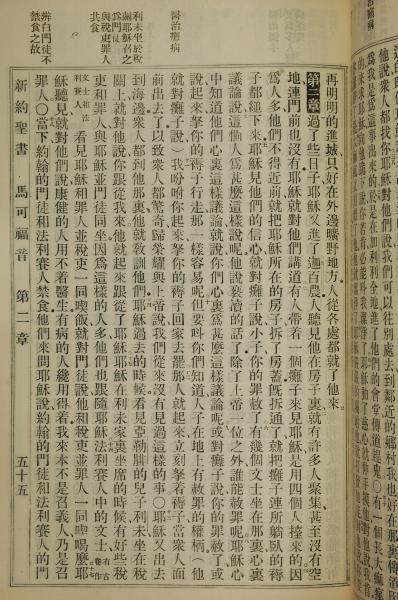 他說衆人都找你耶穌對他們說我們可以往別處去到鄰近的鄉村我也好在那裏傳
再明明的進城只好在外邊曠野地方人從各處都就了他來
第二章過了些日子耶穌又進了迦百農人聽見他在房子裏就有許多人衆集甚至沒有空
地連門前也沒有耶穌就對他們講道有人帶着一個癱子來見耶穌是用四個人擡來的因
爲人多他們不得近前就把耶穌所在的房子拆了房蓋旣拆通了就把癱子連所躺臥的褥
子都縋下來耶穌見他們的信心就對癱子說小子你的罪赦了有幾個文士坐在那裏心裏
議論說這個人爲甚麽這樣說呢他說褻瀆的話了除了上帝一位之外誰能赦罪呢耶穌心
中知道他們心裏這樣議論就說你們心裏爲甚麽這樣議論呢或對癱子說你的罪赦了或
說起來拏你的褥子行走那一樣容易呢但要呌你們知道人子在地上有赦罪的權柄（他
就對癱子說）我吩咐你起來拏你的褥子回家去罷那人就起來立刻拏着褥子當衆人面
前出去了以致衆人都驚奇歸榮耀與上帝說我們從來沒有見過這樣的事○耶穌又出去
到海邊衆人都到他那裏他就敎訓他們耶穌過去的時候看見亞勒腓的兒子利未坐在稅
關上就對他說你跟從我來他就起來跟從了耶穌耶穌在利未家裏坐席的時候有好些稅
吏和罪人與耶穌並門徒同坐因爲這樣的人多他們也跟隨耶穌法利賽人中的文士有古卷作
文士和法利賽人看見耶穌和罪人並稅吏一同喫飯就對門徒說他和稅吏並罪人一同喫喝麽耶
穌聽見就對他們說康健的人用不着醫生有病的人纔用得着我來本不是召義人乃是召
罪人○當下約翰的門徒和法利賽人禁食他們來問耶穌說約翰的門徒和法利賽人的門
醫治癱病
利未坐於稅
關耶穌召之
爲門徒
與稅吏罪人
共食
辨白門徒不
禁食之故
新約聖書 馬可福音 第二章 五十五